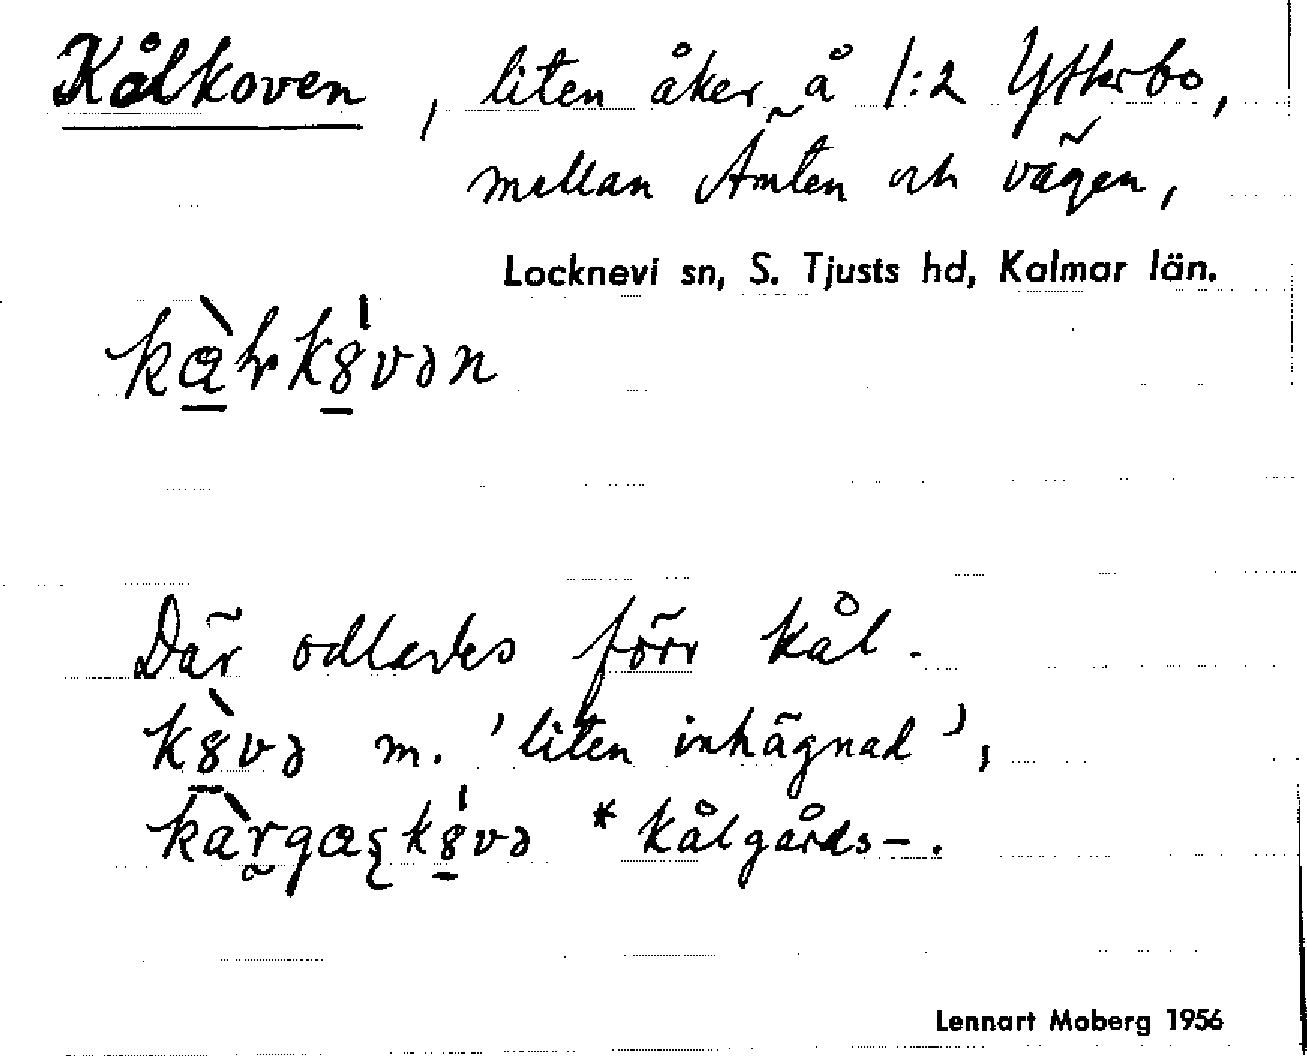 Kålkoven, liten åker å 1:2 Ytterbo,
mellan Ämten och vägen,
Locknevi sn, S. Tjusts hd, Kalmar län.
Där odlades förr kål.
m. 'liten inhägnad',
*kålgårds-.
Lennart Moberg 1956